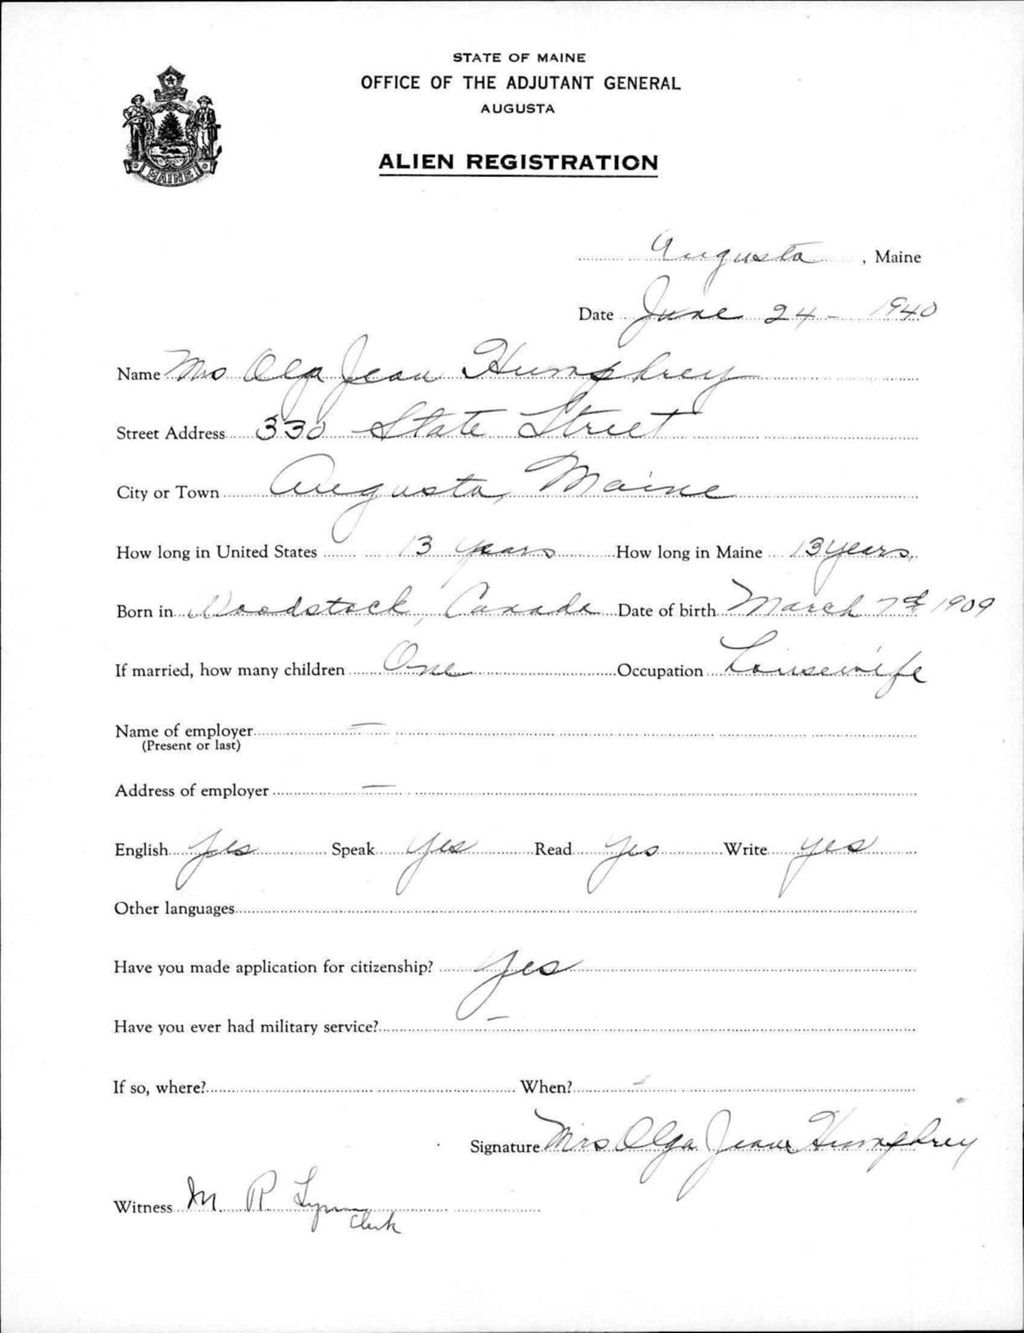 STATE OF MAINE
OFFICE OF THE ADJUTANT GENERAL
AUGUSTA
ALIEN REGISTRATION
MAINE
Augusta, Maine
Date June 24 - 1940
Name Mrs Olga Jean Humphrey
Street Address 330 State Street
City or Town Augusta, Maine
How long in United States 13 years How long in Maine 13 years
Born in Woodstock, Canada Date of birth March 7th 1909
If married, how many children One Occupation Housewife
Name of employer —
(Present or last)
Address of employer —
English yes Speak yes Read yes Write yes
Other languages
Have you made application for citizenship? Yes
Have you ever had military service? —
If so, where? When? -
Signature Mrs Olga Jean Humphrey
Witness M. R. Clerk